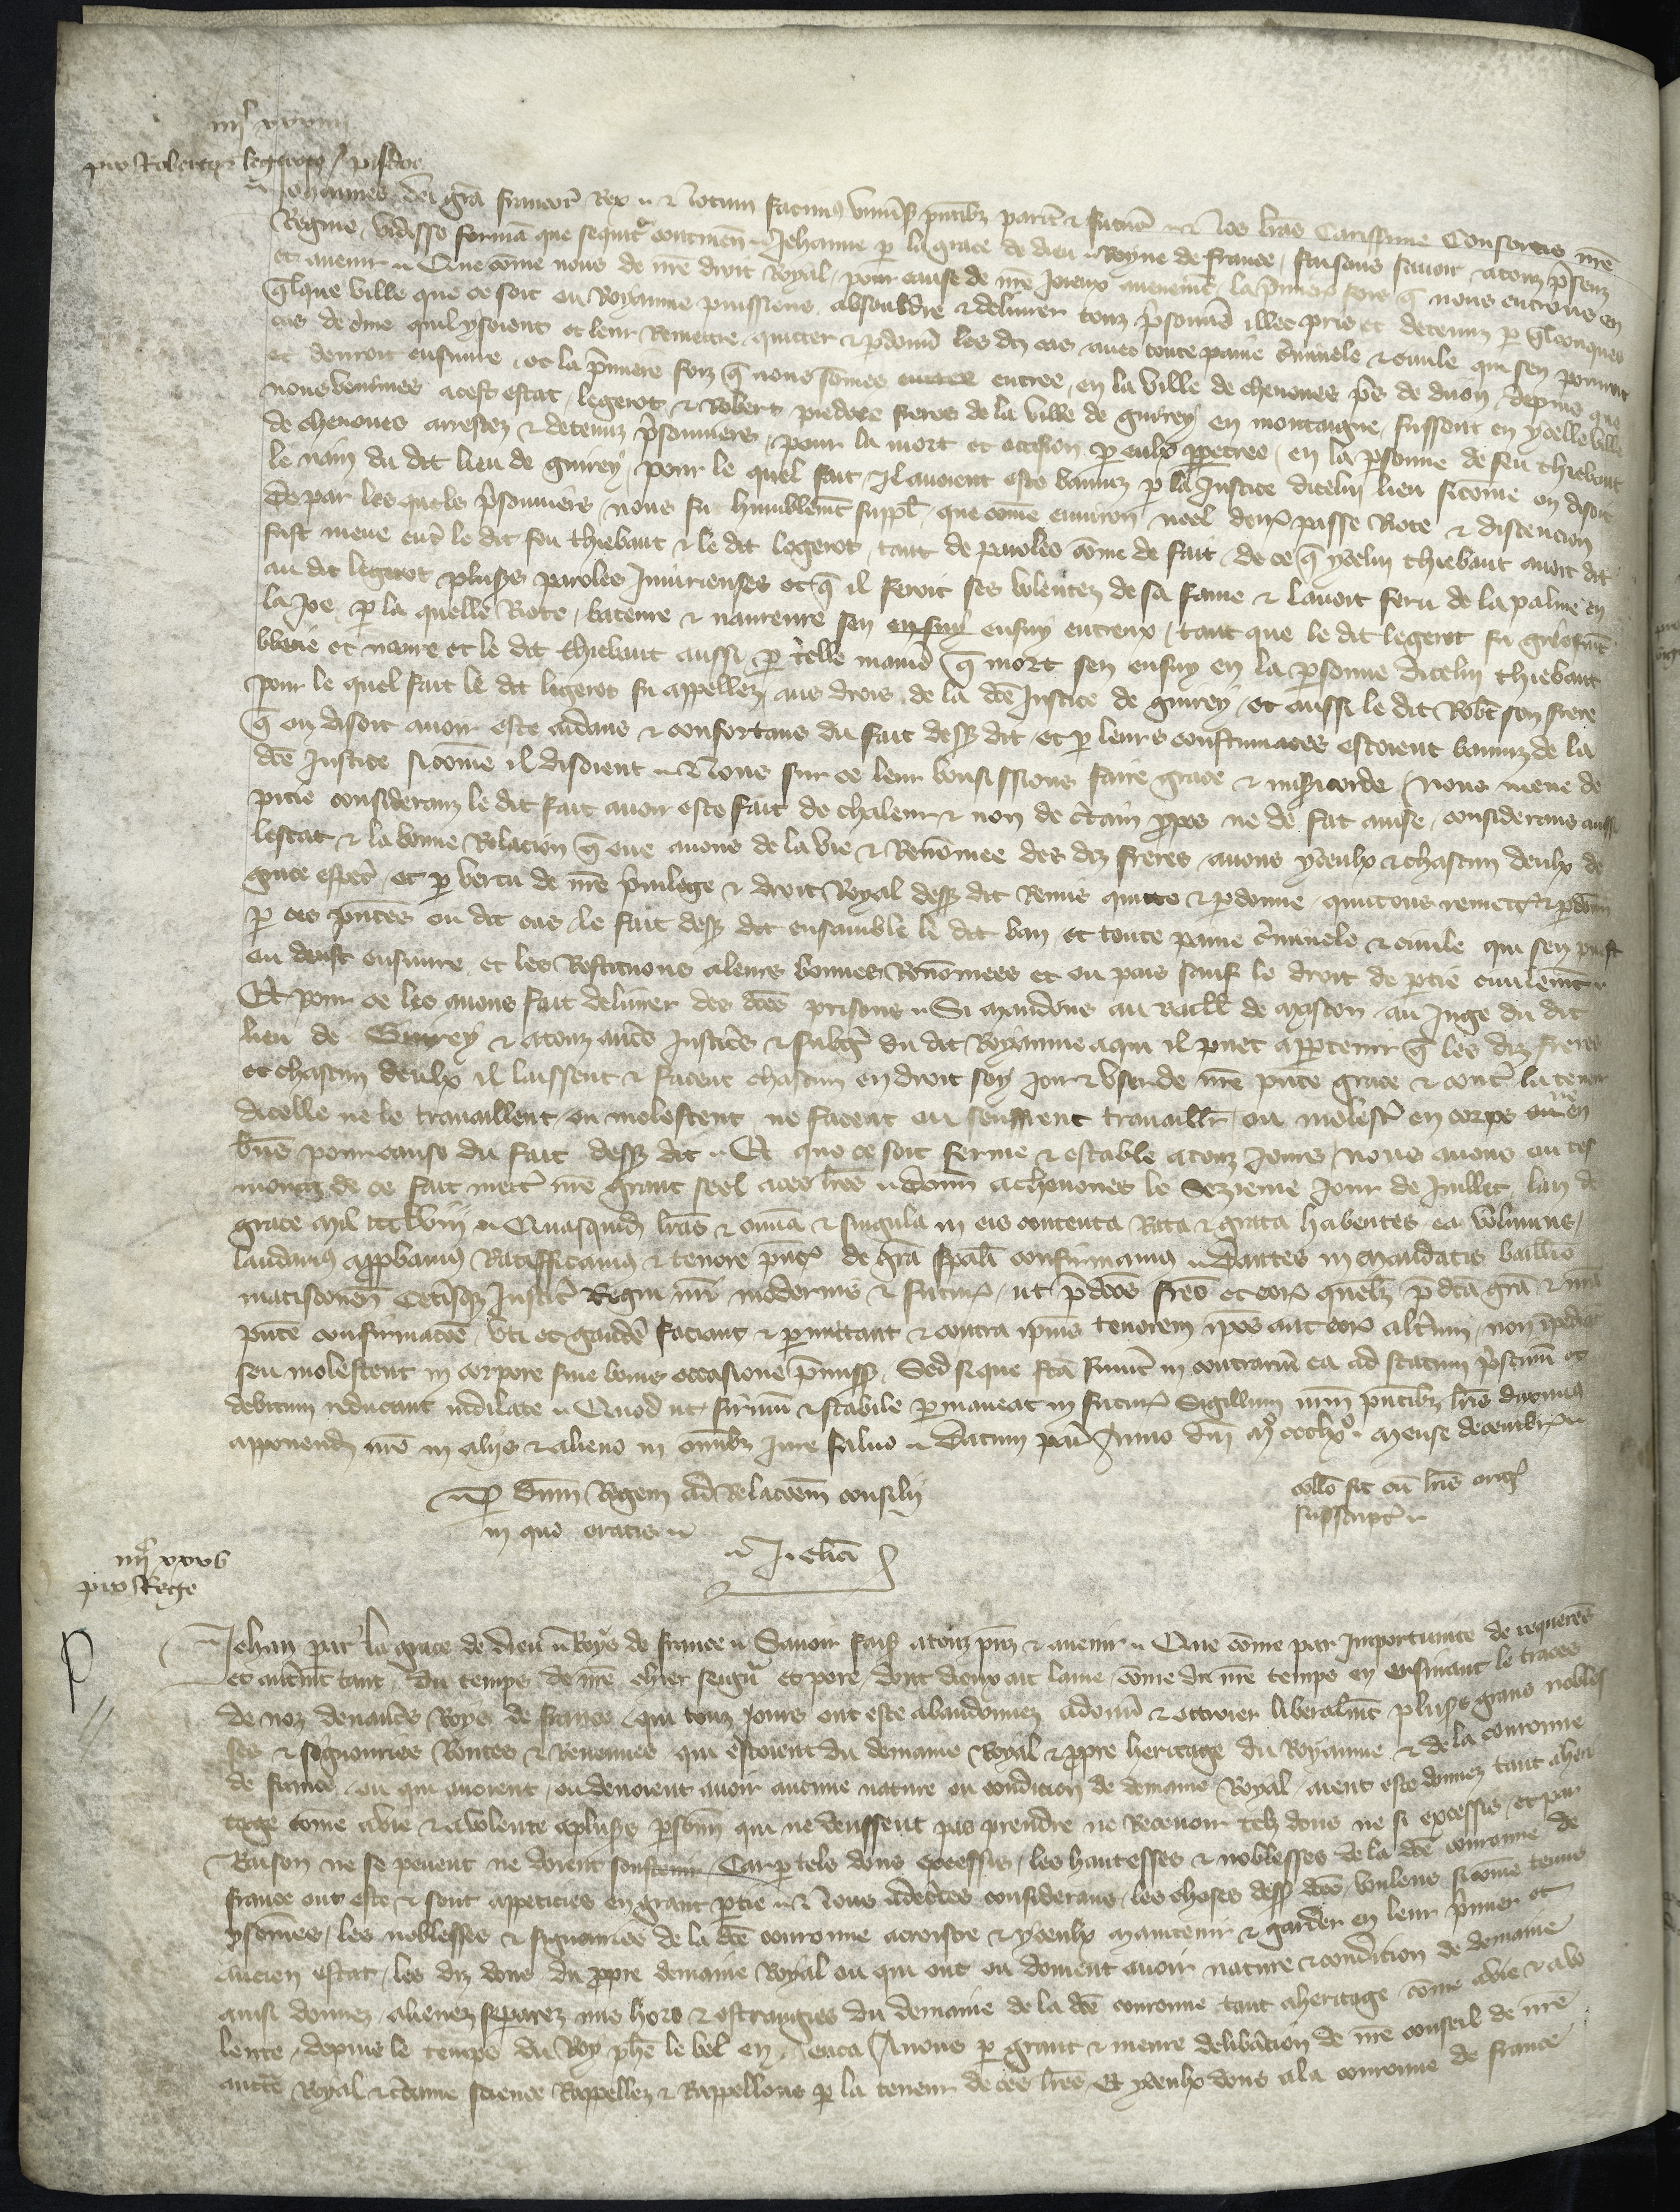 iiiiᶜ xxxiiii
pro Roberto legerot piedoe
Johannes dei grã francorũ Rex Notum facimus univ̾sis p̃ntibz parit̾ & futur̾ Nos lr̃as Carissime Consortis nr̃e
Regine vidisse formã que sequit᷑ continen̾ Jehanne p̱ la grace de dieu Royne de france, faisons savoir a touz p̾senz
et avenir Que cõme nous de nr̃e droit Royal pour cause de nr̃e joieux avenem̃t, la p̾miere fois q̃ nous entrons en
q̃lque ville que ce soit ou Royaume puissiens absouldre & delivrer touz p̾sonniers illec pris et detenuz p̱ q̃lconques
cas de c̾me quil y soient et leur Remettre quitter & p̱donn̾ les diz cas avec toute paine c̾iminele & civile qui sen pourroit
et devroit ensuivre, et la p̾miere foiz q̃ nous sõmes entree entree en la ville de chenoves p̾s de diion depuis que
nous venimes a cest estat, legerot & Robert piedoee freres de la ville de guirey en montaigne fussent en ycelle ville
de chenoves arrestez & detenuz p̾sonniers, pour la mort et occision p̱ eulx p̱petree en la p̱sonne de feu thiebaut
le nain du dit lieu de guirey, pour le quel fait Il avoient este banniz p̱ la Justice dicelui lieu sicõme on disoit
De par les quels p̾sonniers nous fu humblem̃t suppl̃ que cõme environ noel derr̾ passe Rote & discencion
fust meue entr̾ le dit feu thiebaut & le dit legerot, tant de paroles cõme de fait, de ce q̃ ycelui thiebaut avoit dit
au dit legerot plus̾s paroles Iniurieuses et q̃ il feroit ses volentez de sa fame & lavoit feru de la palme en
la Joe, p̱ la quelle Rote, bateure & navreure sen en suy ensuy entreux, tant que le dit legerot fu gr̾efm̃t
blecie et navre et le dit thiebaut aussi p̱ telle manie̾ q̃ mort sen ensuy en la p̱sonne dicelui thiebaut
pour le quel fait le dit legerot fu appellez aus drois de la dc̃e Justice de guirey, et aussi le dit Rob̾t son frere
q̃ on disoit avoir este aidans & confortans du fait dess̾ dit et p̱ leurs contumaces estoient banniz de la
dc̃e Justice sicõme il disoient Nous sur ce leur vousissions faire grace & mis̾icorde, Nous meue de
pitie considerans le dit fait avoir este fait de chaleur & non de c̾tain p̱pos ne de fat avise, considerans aussi
lestat & la bonne Relacion q̃ oue avons de la vie & Renõmee des diz freres avons yceulx & chascun deulx de
grace esp̾c̾, et p̱ vertu de nr̃e p̾vilege & droit Royal dess̾ dit Remis quitte & p̱donne, quittons remett̾ & p̱donn̾
p̱ ces p̃ntes ou dit cas, le fait dess̾ dit ensamble le dit ban et toute paine c̾iminele & civile qui sen puest
ou deust ensuivre et les Restituons a leurs bonnes Renõmees et ou pais sauf le droit de p̱tie civilem̃t
Et pour ce les avons fait delivrer des dc̃es prisons Si mandons au Baill̾ de mascon au Juge du dit
lieu de Guirey & a touz autr̾s Justic̾s & subg̾ du dit Royaume a qui il puet app̱tenir q̃ les diz freres
et chascun deulx il laissent & facent chascun en droit soy joir & user de nr̃e p̃nte grace & contr̾ la teneur
dicelle ne le travaillent ou molestent, ne facent ou seuffrent travaill̾r ou molest̾ en corps ou en
biens pour cause du fait dess̾ dit Et que ce soit ferme & estable a touz jours, nous avons en tes
moing de ce fait mett̾ nr̃e grant seel a ces lr̃es donn̾ a chenoves le sezieme jour de Juillet lan de
grace mil ccc lviii Quas quid̾ lr̃as & om̃ia & singula in eis contenta Rata & grata habentes ea volumus,
laudamus app̱bamus Ratifficamus & tenore p̃nt̾ de grã sp̾ali confirmamus Dantes in mandatis baillivo
matisconen̾ Cet̾isq̃ Justic̾ Regni nr̃i modernis & futuris, ut p̾dc̃os fr̃es et eorũ quẽlz p̾ dc̃a grã & nr̃a
p̃nte confirmacõe, uti et gaud̾e faciant & p̱mittant & contra ip̃ius tenorem ip̃os aut eorũ alt̾um non ĩpediãt
seu molestent in corpore sive bonis occasione p̾miss̾, Sed si que fc̃a fuerit in contrariũ ea ad statum p̾stinũ et
debitum reducant indilate Quod ut firmũ & stabile p̱maneat in futur̾ Sigillum nr̃m p̃ntibz lr̃is duximus
apponend̾ nr̃o in aliis & alieno in om̃ibz Jure salvo Datum par̾ Anno dñi mͦ ccclxͦ mense decembr̾
P̱ dñm Regem ad Relacõem consilii
in quo eratis
J. clici
coll̃o fit cũ lr̃is orig̾
suprscript̾
iiiiᶜ xxxv
pro Rege
Jehan par la grace de dieu Roys de france Savoir fais̾ a touz p̃nz & avenir Que cõme par importunite de requer̃es
et autrem̃t tant du temps de nr̃e chier seign̾ et pere, dont dieux ait lame cõme du nr̃e temps en ensuiant le traces
de noz devanc̾s Roys de france, qui touz jours ont este abandonnez a donn̾ & ottroier liberalm̃t plus̾s grans nobles
ses & seignouries Rentes & Revenues qui estoient du demaine Royal & p̱pre heritage du Royaume & de la couronne
de france ou qui avoient, ou devoient avoir aucune nature ou condicion de demaine Royal, aient este donnez tant a heri
tage cõme a vie & a volente a plus̾s p̱sonn̾ qui ne deussent pas prendre ne Recevoir telz dons ne si excessis, et par
Raison ne se peuent ne doient soustenir, Car p̱ telx dons excessis, les hautesses & noblesses de la dc̃e couronne de
france ont este & sont appeticies en grant p̱tie Nous adec̾tes considerans, les choses dess̾ dc̃es, vuilens sicõme tenus
y sõmes, les noblesses & signouries de la dc̃e couronne acroistre & yceulx maintenir & garder en leur p̾mier et
ancien estat, les diz dons du p̱pre demaine Royal ou qui ont ou doivent avoir nature & condicion de demaine
ainsi donnez, alienez, separez mis hors & estrangies du demaine de la dc̃e couronne tant a heritage cõme a vie & a vo
lente, depuis le temps du Roy phẽ le bel en enca, Avons p̱ grant & meure delib̾acion de nr̃e conseil de nr̃e
auct̾e Royal & c̾taine science Rappellez & Rappellons p̱ la teneur de ces lr̃es Et yceulx dons a la couronne de france